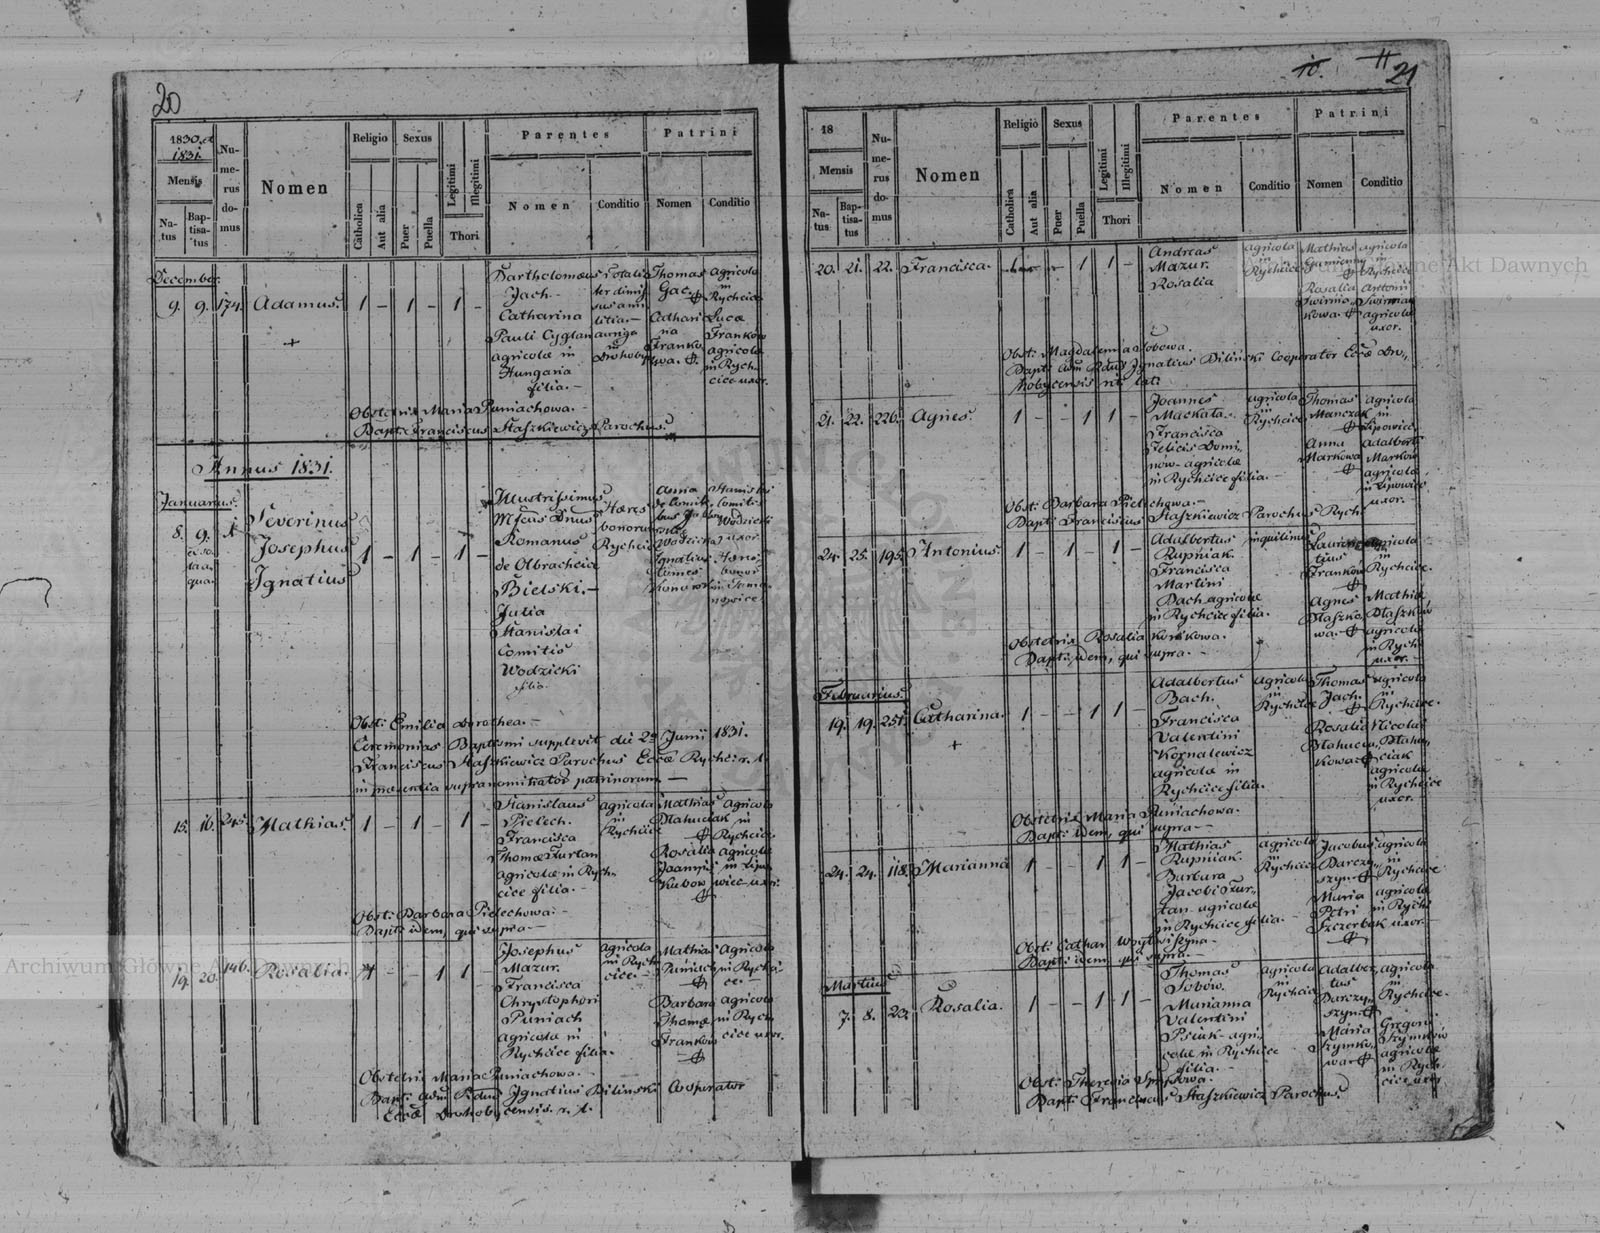 20
1830. et
1831.
Mensis
Na-
tus
Bap-
tisa-
tus
Nu-
me-
rus
do-
mus
Nomen
Religio
Catholica
Aut alia
Sexus
Puer
Puella
Legitimi
Illegitimi
Thori
Parentes
Nomen
Conditio
Patrini
Nomen
Conditio
December.
9. 9. 174. Adamus. 1 - 1 - 1 -
Bartholomæus
Jach.
Catharina
Pauli Cyglan
agricolæ in
Hungaria
filia.-
Thomas
Gac.
Cathari
na
Franko
wa.
agricola
in
Rychcice
Lucæ
Franków
agricolæ
in Rych
cice uxor.
Obstetrix Maria Puniachowa.-
Bapt: Franciscus Staszkiewicz Parochus.
Annus 1831.
Januarius.
8. 9. 1
Severinus
Josephus
Ignatius
1 - 1 - 1 -
Illustrissimus
Romanus
de Olbrachcice
Bielski.-
Julia
Stanislai
Comitis
Wodzicki
filia
Hæres
bonorum
Rychcice
Obst: Emilia Dorothea.-
Ceremonias Baptismi supplevit die 29 Junii 1831.
Franciscus Staszkiewicz Parochus Eccæ Rychc: r. l.
in præsentia supranominator patrinorum.-
15. 16. 245. Mathias. 1 - 1 - 1 -
Stanislaus
Pielech.
Francisca
Thomæ Furtan
agricolæ in Rych-
cice filia.-
agricola
in
Rychcice
Mathias
Błahuciak
Rosalia
Joannis
Kubow
agricola
in
Rychcice.
agricolæ
Obst: Barbara Pielechowa.-
Bapt: idem, qui supra-
19. 20. 146. Rosalia. 1 - - 1 1 -
Josephus
Mazur.
Francisca
Chrystophori
Puniach
agricola in
Rychcice filia.
agricola
in Rych
cice.-
Mathias
Puniach
Barbara
Thomæ
Franków
agricola
in Rychci-
ce.-
agricolæ
in Rych
cice uxor.
Obstetrix Maria Puniachowa.-
Bapt: Adm Rdus Ignatius Biliński Cooperator
Eccæ Drohobycensis. r. l.
10. 11
21
18
Mensis
Na-
tus
Bap-
tisa-
tus
Nu-
me-
rus
do-
mus
Nomen
Religio
Catholica
Aut alia
Sexus
Puer
Puella
Legitimi
Illegitimi
Thori
Parentes
Nomen
Conditio
Patrini
Nomen
Conditio
20. 21. 22. Francisca. 1 - - 1 1 -
Andreas
Mazur.
Rosalia
agricola
in
Rychcice
Mathias
Rosalia
agricola
in
Rychcice
Antonii
agricolæ
uxor.
Obst: Magdalena Sobowa.
Bapt: Adm Rdus Ignatius Biliński Cooperator Eccæ Dro-
hobycensis rit: lat:
21. 22. 226. Agnes 1 - - 1 1 -
Joannes
Mackała.
Francisca
Felicis Domi-
nów agricolæ
in Rychcice filia.-
agricola
in
Rychcice
Thomas
Manczak
Anna
Markowa
agricola
in
Lipowice,
Adalberti
Marków
agricolæ
in Lipowice
uxor.
Obst: Barbara Pielechowa.-
Bapt: Franciscus Staszkiewicz Parochus Rych:
24. 25. 195. Antonius. 1 - 1 - 1 -
Adalbertus
Rupniak.
Francisca
Martini
Bach agricolæ
in Rychcice filia.
inquilinus
Lauren
tius
Franków
Agnes
Błaszko
wa.-
agricola
in
Rychcice.
Mathiæ
Błaszków
agricolæ
in Rych
uxor.-
Obstetrix Rosalia Końkowa.
Bapt: idem, qui supra.-
Februarius.
19. 19. 251. Catharina. 1 - - 1 1 -
Adalbertus
Bach.
Francisca
Valentini
Kornalewicz
agricolæ in
Rychcice filia.
agricola
in
Rychcice
Thomas
Jach.
Rosalia
agricola
in
Rychcice.
Nicolai
Błahu-
ciak
agricolæ
in Rychcice
uxor.
Obstetrix Maria Puniachowa.
Bapt: idem, qui supra-
24. 24. 118. Marianna 1 - - 1 1 -
Mathias
Rupniak.
Barbara
Jacobi Fur-
tan agricolæ
in Rychcice filia.-
agricola
in
Rychcice
Jacobus
Barczy-
szyn
Maria
Petri
Szczerbak
agricola
in
Rychcice
agricolæ
in Rych
uxor.-
Obst: Cathar: Woytwiszyna.
Bapt: idem, qui supra.-
Martius
7. 8. 23. Rosalia. 1 - - 1 1 -
Thomas
Sobów.
Marianna
Valentini
Psiuk agri-
colæ in Rychcice
filia.-
agricola
in
Rychcice
Adalber
tus
Barczy-
szyn
Maria
Szymko-
wa
agricola
in
Rychcice.
Gregorii
Szymków
agricolæ
in Rych-
cice uxor
Obst: Theresia
Bapt: Franciscus Staszkiewicz Parochus.
Archiwum Główne Akt Dawnych